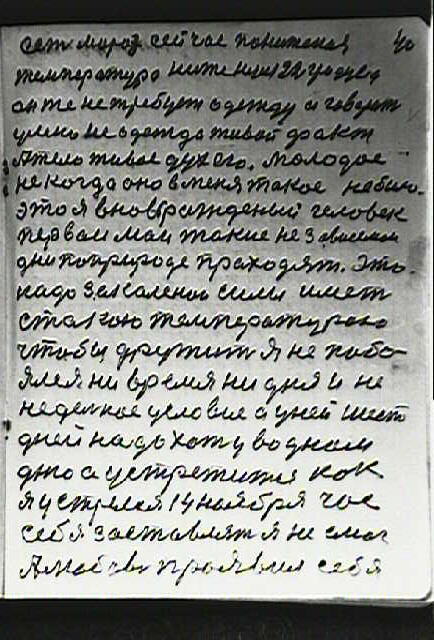 сет мороз сейчас пониженая 40
температура ниже нш 22 градуса
он те не требует одежду а говорит
не одежда живой факт
А тело живое дух его. молодое
некогда оно в меня такое небыло.
это я вновврожденый человек
первом мои такие не зависемои
дни поприроде праходят. Это.
надо закаленои силы имет
стакою температурою
чтобы дружит я не побо-
ялся ни время ни дня и не
неделкое условие а у ней шест
дней надо хот у водном
дно а устретится как
я устрелся 14 ноября час
себя заставлят я не смог
А проявил себя